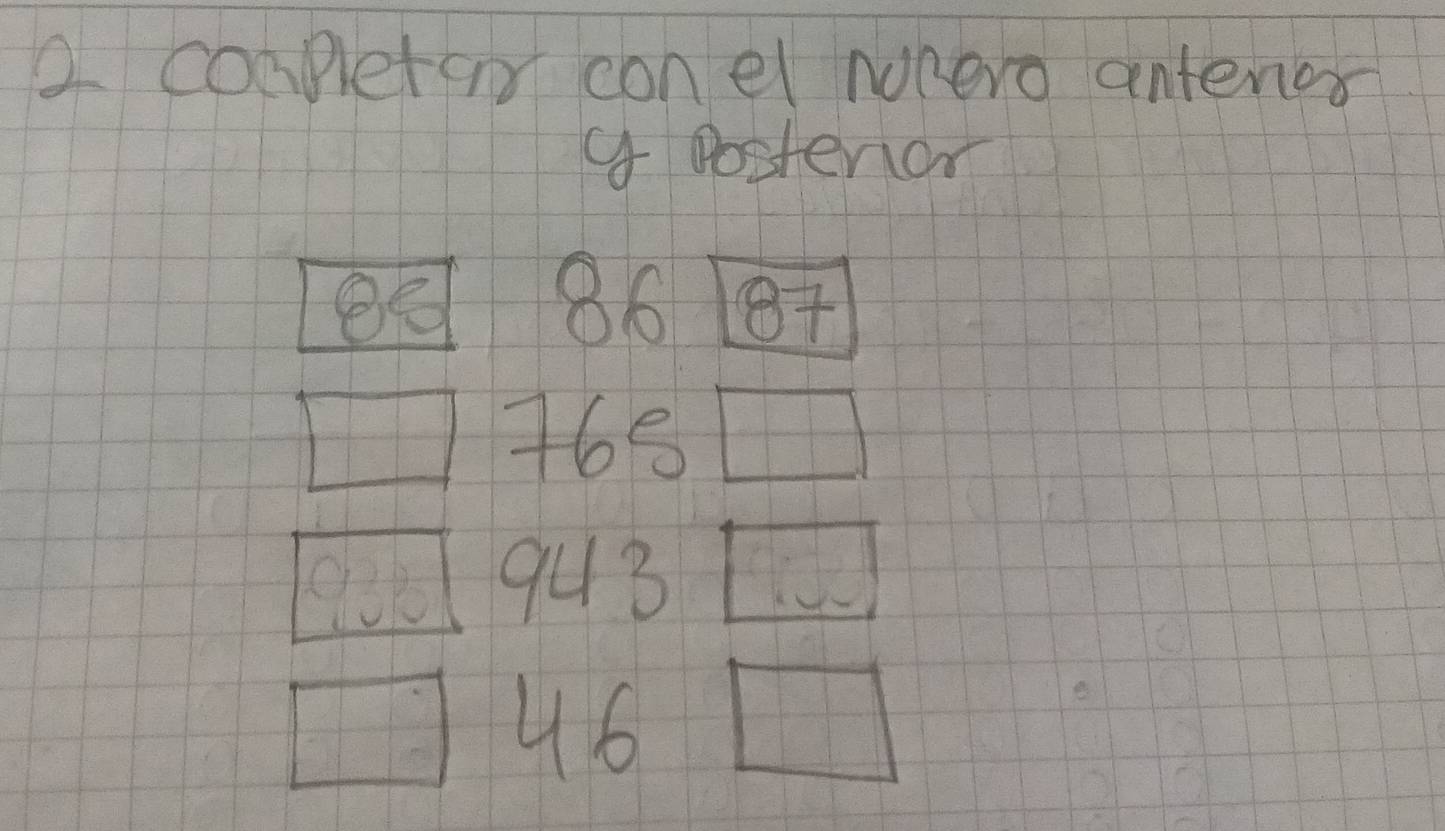 2 completar con el numero anterior
y posterior
85 86 87
765
943
46